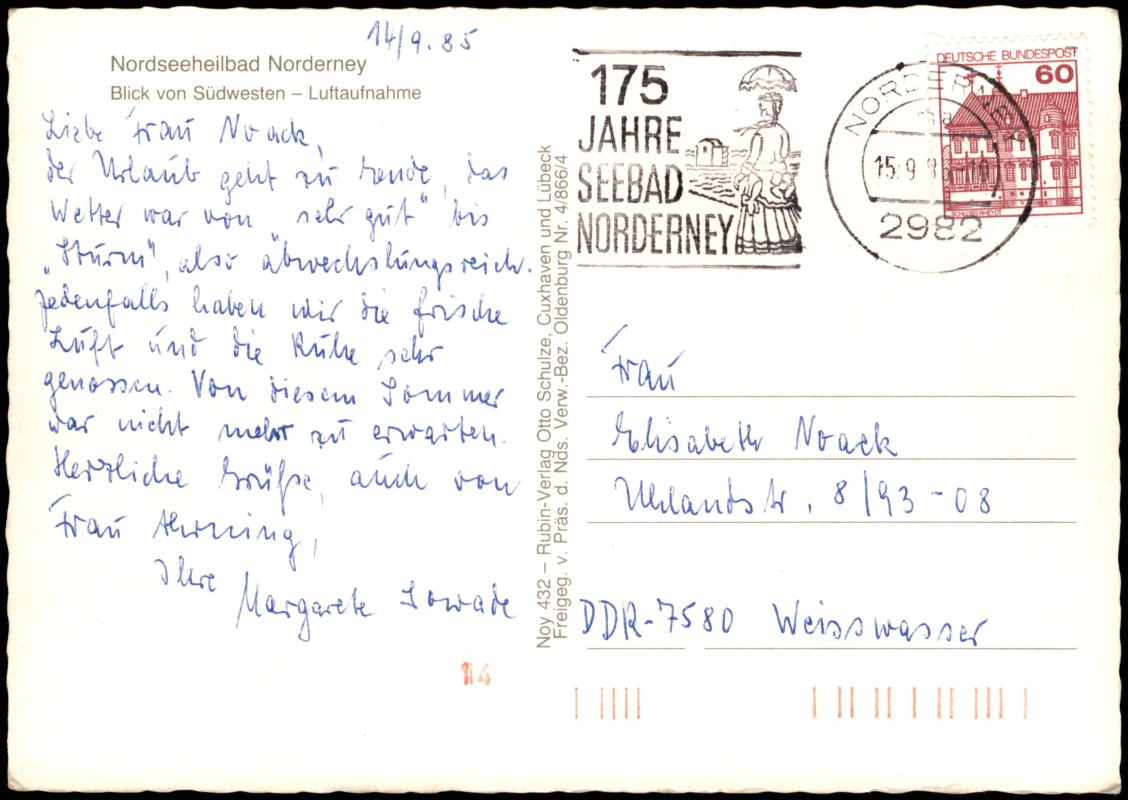 14/9.85
Nordseeheilbad Norderney
Blick von Südwesten – Luftaufnahme
Liebe Frau Noack,
der Urlaub geht zu Ende, das
Wetter war von „sehr gut" bis
„Sturm", also abwechslungsreich.
Jedenfalls haben wir die frische
Luft und die Ruhe sehr
genossen. Von diesem Sommer
war nicht mehr zu erwarten.
Herzliche Grüße, auch von
Frau
Ihre
Margarete
114
Noy 432 – Rubin-Verlag Otto Schulze, Cuxhaven und Lübeck
Freigeg. v. Präs. d. Nds. Verw.-Bez. Oldenburg Nr. 4/866/4
175
JAHRE
SEEBAD
NORDERNEY
NORDERNEY
15.9.8
2982
DEUTSCHE BUNDESPOST
60
SCHLOSS RHEYDT
Frau
Elisabeth Noack
Uhlandstr. 8/93-08
DDR-7580 Weisswasser